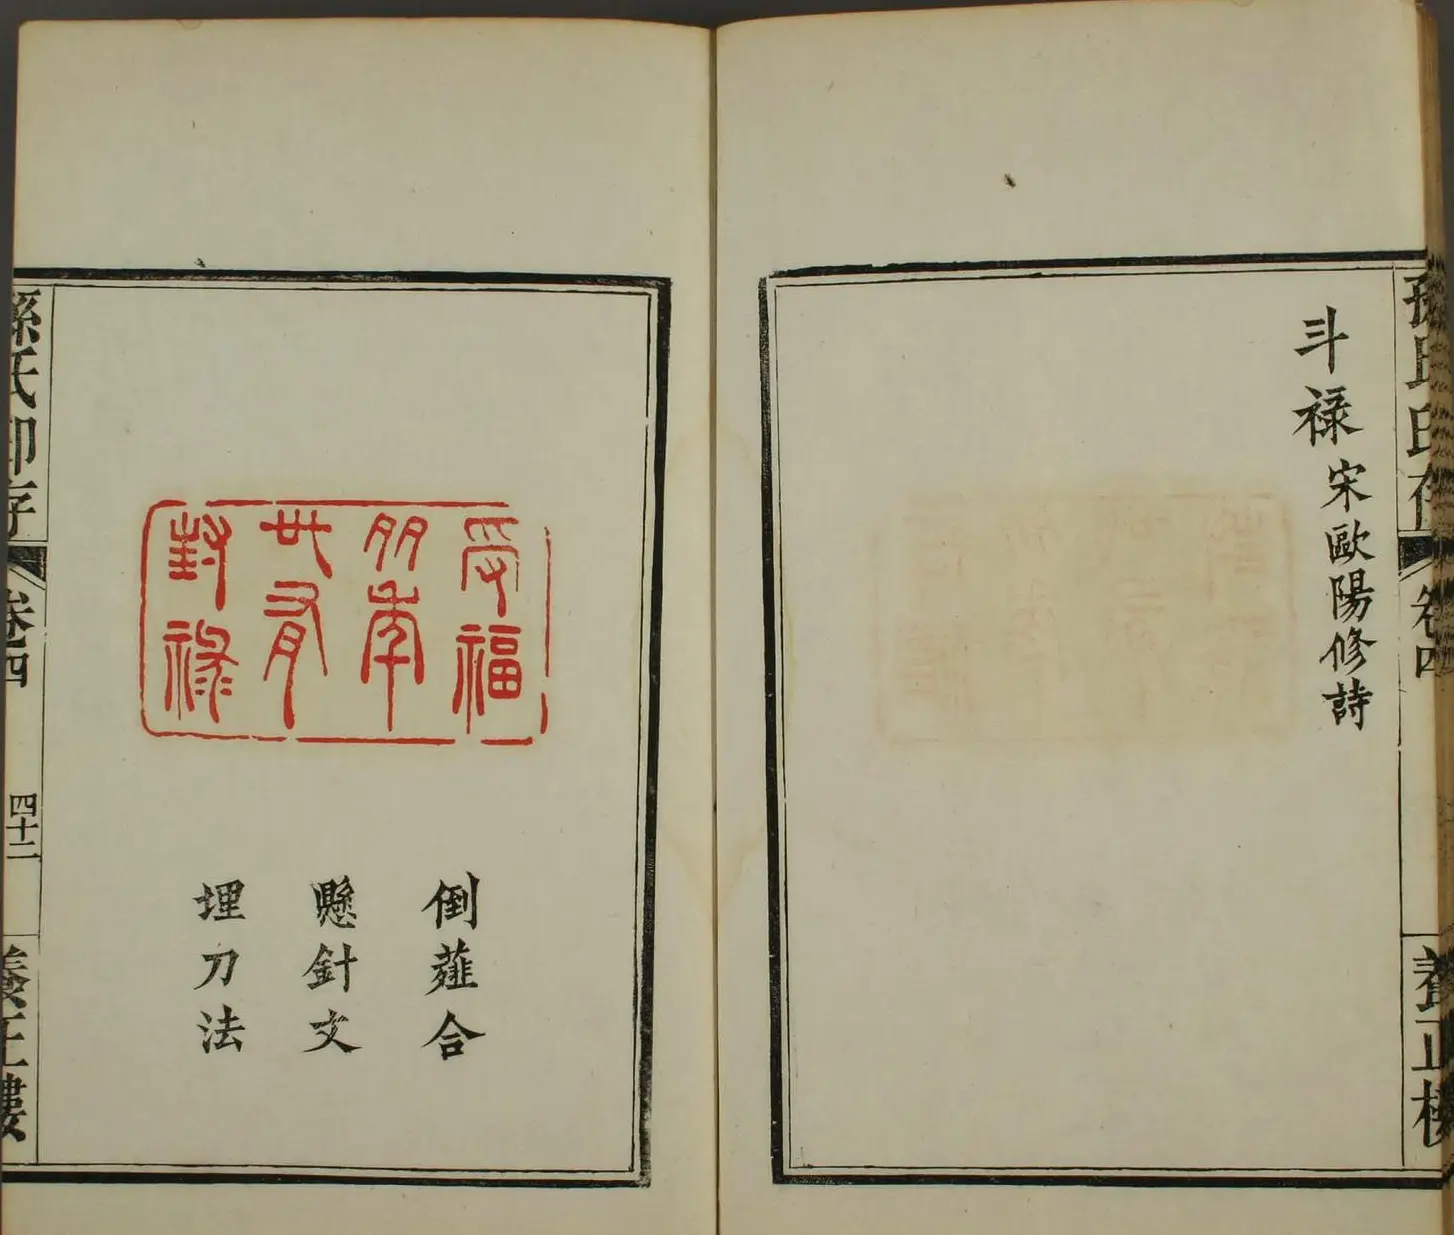 孫氏印存
卷四
養正樓
斗祿
宋歐陽修詩
受福
朋年
世有
封祿
倒薤合
懸針文
埋刀法
孫氏印存
卷四
四十二
養正樓